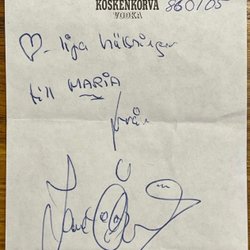 KOSKENKORVA
VODKA 860705
liga hälsningar
till MARIA
från